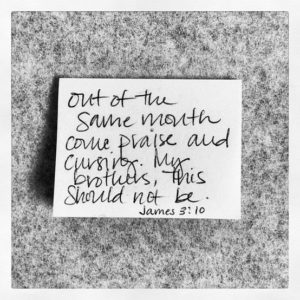 out of the
same mouth
come praise and
cursing. My
brothers, this
should not be.
James 3:10